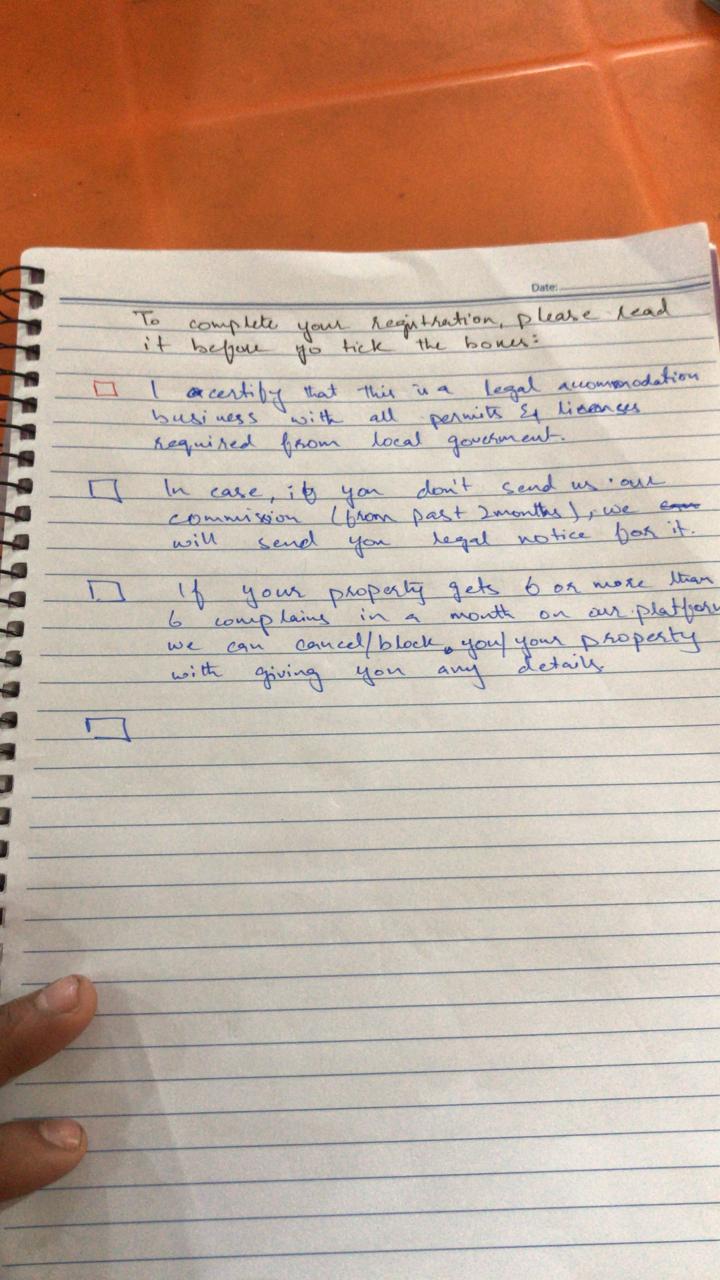 Date:
To complete your registration, please read
it before yo tick the boxes:
I certify that this is a legal accommodation
business with all permits & licenses
required from local goverment.
In case, if you don't send us our
commission (from past 2months), we
will send you legal notice for it.
If your property gets 6 or more than
6 complains in a month on our platform
we can cancel/block you/your property
with giving you any details